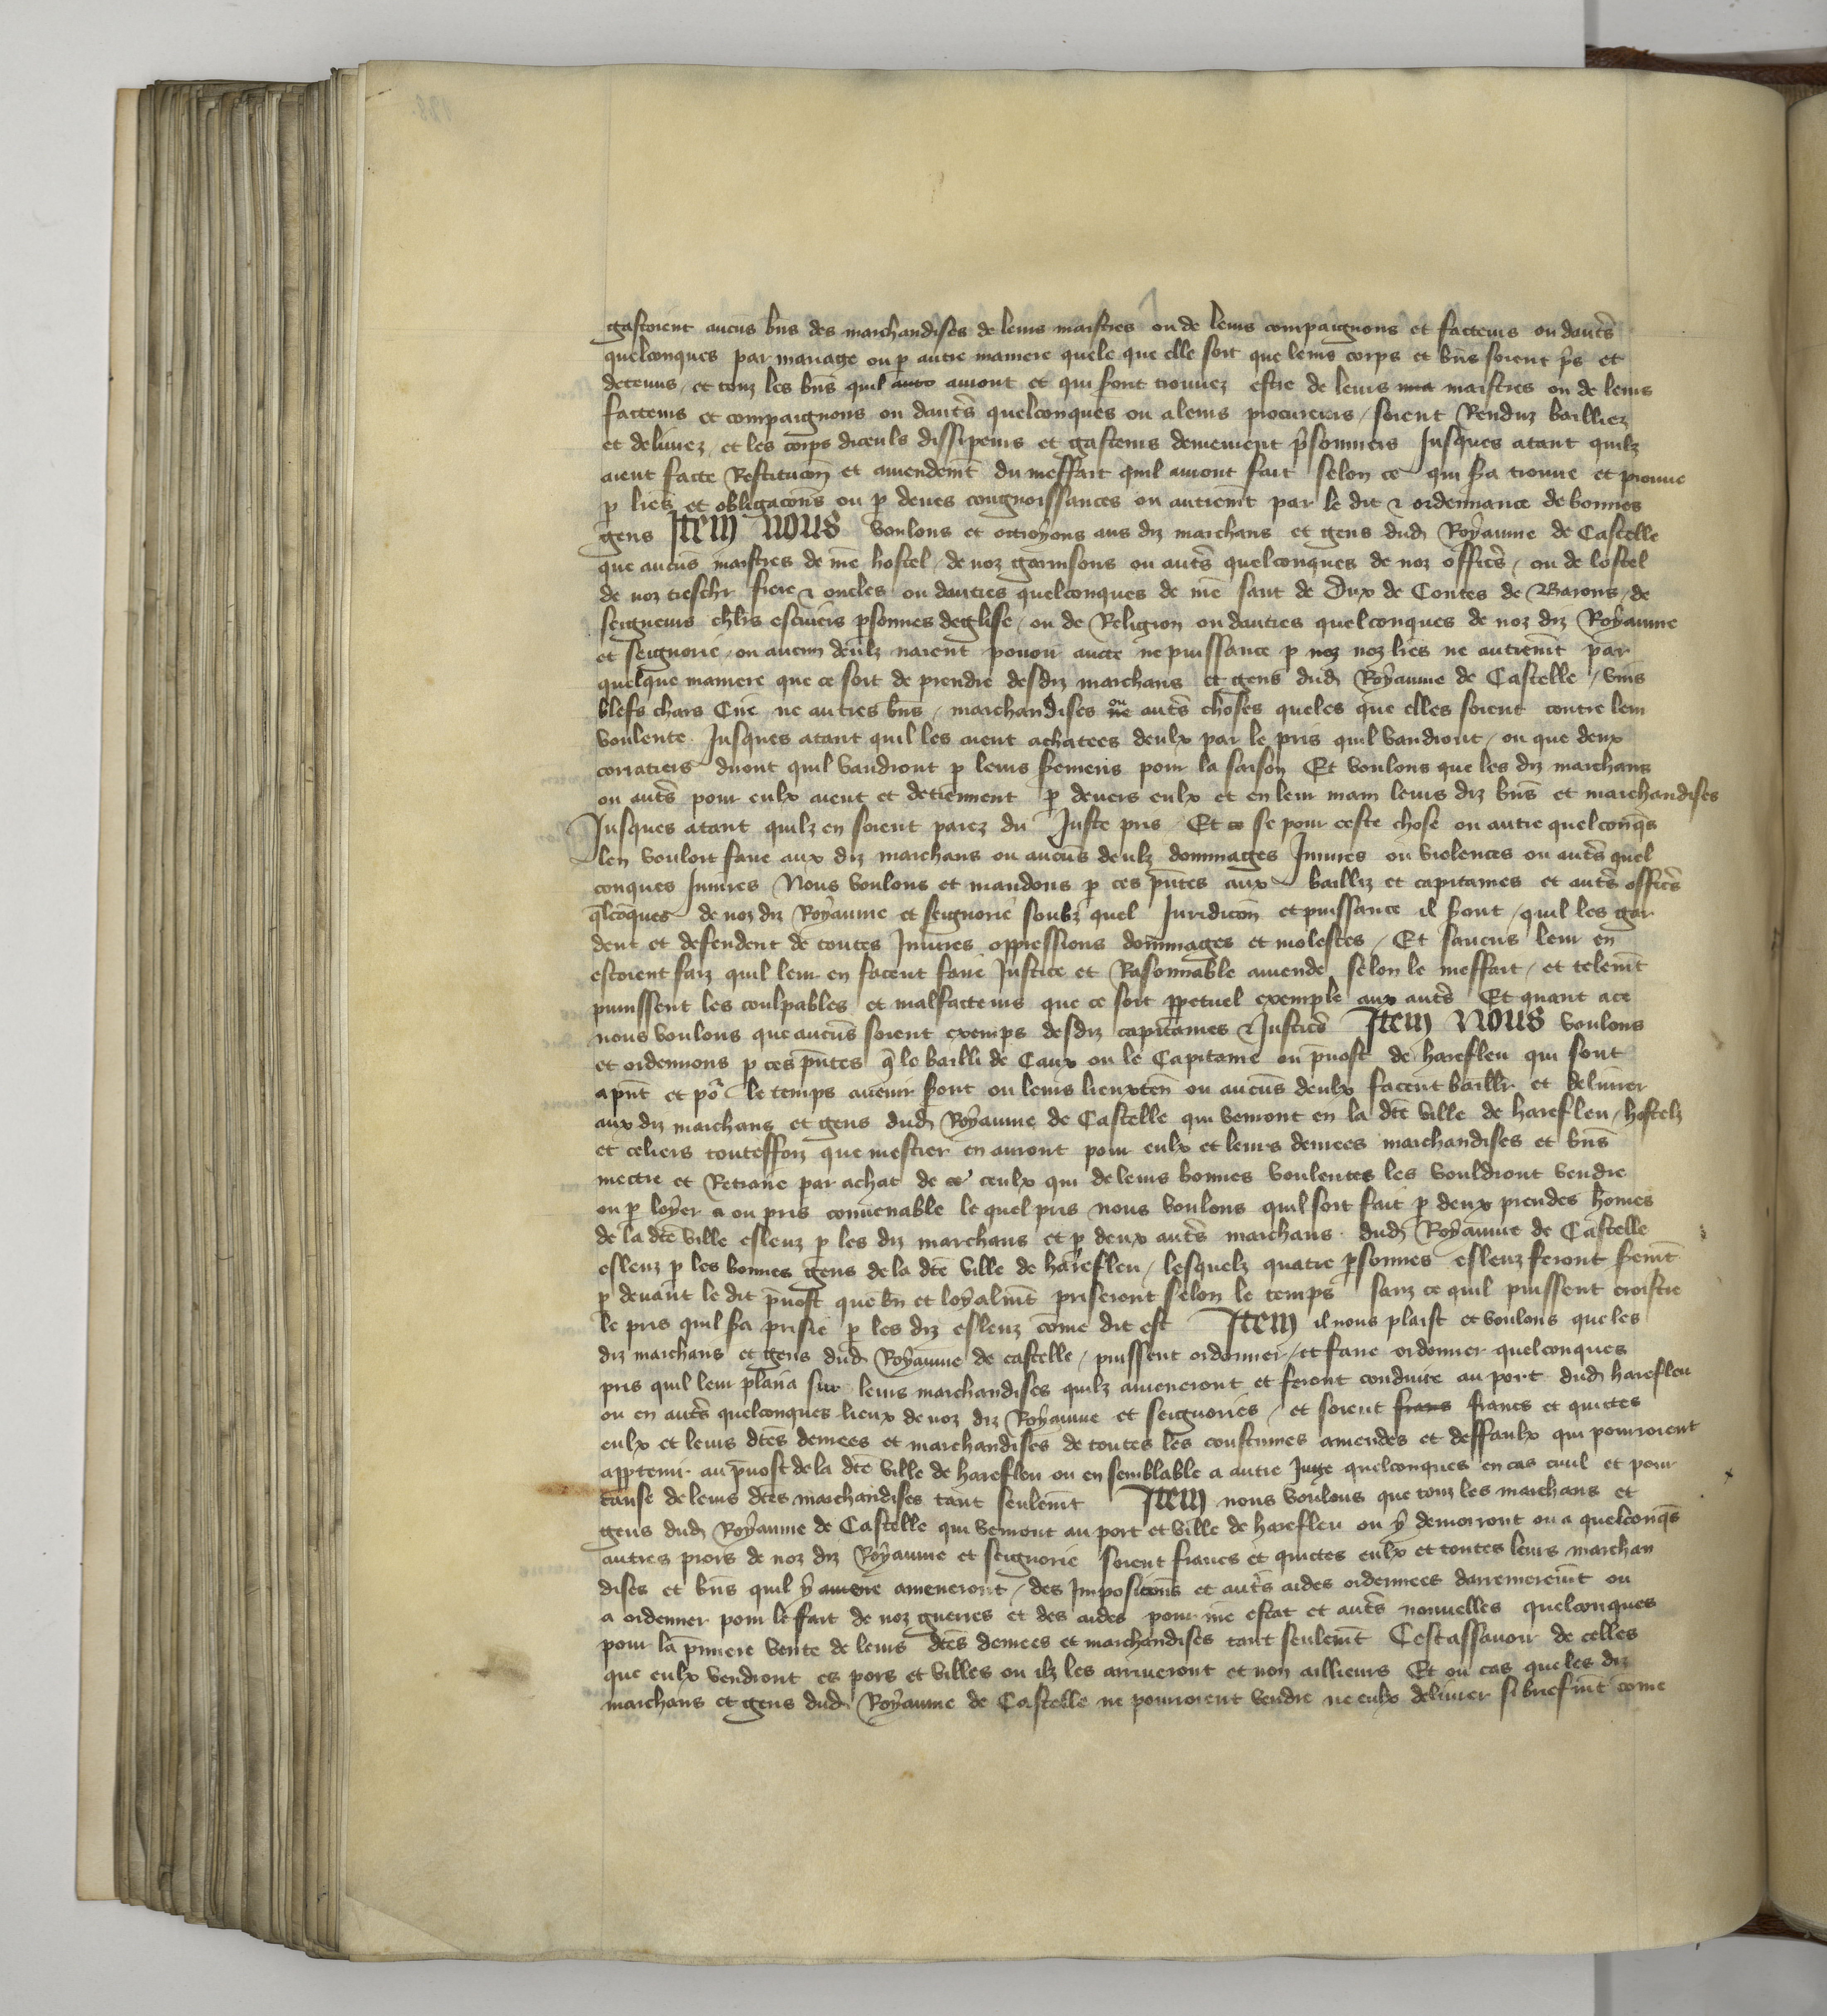 gasteient aucūs bn̄s des marchandises de leurs maistres ou de leurs compaignons et facteurs ou daut̄s
quelconques par mariage ou p autre maniere quele que elle soit que leurs corps et bn̄s soient p̄s et
detenus / et touz les bn̄s quil auront et qui s̄ont trouuez estre de leurs maistres ou de leurs
facteurs et compaignons ou daut̄s quelconques ou a leurs procureurs / soient Renduz bailliez
et deliurez / et les corps diceuls dissipeurs et gasteurs demeurent p̄sonniers Jusques atant quilz
aient facte Restitucōn et amendem̄t du meffait quil auront fait selon ce qui s̄a trouue et prouue
p lr̄es et obligacōns ou p deues congnoissances ou autrem̄t par le dit & ordennance de bonnes
gens Item nous voulons et octroyons aus diz marchans et gens dud Royaume de Castelle
que aucūs maistres de n̄re hostel / de noz garnisons ou aut̄s quelconques de noz offic̄s / ou de lostel
de noz treschr̄ frere & oncles ou dautres quelconques de n̄re sanc de Dux de Contes de Barons / de
seigneurs ch̄lrs escuiers p̄sonnes deglise / ou de Religion ou dautres quelconques de noz diz Royaume
et seignorie / ou aucun deulz naient pouoir aucte ne puissance p noz noz lr̄es ne autrem̄t par
quelque maniere que ce soit de prendre desdiz marchans et gens dud Royaume de Castelle / vins
blefs chars Cire ne autres bn̄s / marchandises ne ou aut̄s choses queles que elles soient contre leur
voulente Jusques atant quil les aient achatees deulx par le pris quil vaudront / ou que deux
corratiers diront quil vaudront p leurs s̄emens pour la saison Et voulons que les diz marchans
ou aut̄s pour eulx aient et detiennent p deuers eulx et en leur main leurs diz bn̄s et marchandises
Jusques atant quilz en soient paiez du Juste pris / Et ce se pour ceste chose ou autre quelconq̄s
len vouloit faire aux diz marchans ou aucūs deulz dommages Iniures ou violences ou aut̄s quel
conques Iniures Nous voulons et mandons p ces pn̄tes aux bailliz et capitaines et aut̄s offic̄s
q̄lcōques de noz diz Royaume et seignorie soubz quel Juridicōn et puissance il s̄ont / quil les gar
dent et defendent de toutes Iniures oppressions dommages et molestes / Et saucūs leur en
estoient faiz quil leur en facent faire Justice et Rasonnable amende selon le meffait / et telem̄t
punissent les coulpables et malfacteurs que ce soit p̄petuel exemple aux aut̄s Et quant ace
nous voulons que aucūs soient exemps desdiz capitaines & Justic̄s Item nous voulons
et ordennons p ces pn̄tes q̄ le bailli de Caux ou le Capitaine ou p̄uost de harefleu qui sont
apn̄t et po^r le temps auenir s̄ont ou leurs lieuxten̄ ou aucūs deulx facent baillr̄ et deliurer
aux diz marchans et gens dud Royaume de Castelle qui venront en la dt̄e ville de harefleu / hostelz
et celiers toutesfoiz que mestier en auront pour eulx et leurs denrees marchandises et bn̄s
mectre et Retraire par achat de ce ceulx qui de leurs bonnes voulentes les vouldront vendre
ou p loyer a ou pris conuenable le quel pris nous voulons quil soit fait p deux preudes hōmes
de la dt̄e ville esleuz p les diz marchans et p deux aut̄s marchans dud Royaume de Castelle
esleuz p les bonnes gens de la dt̄e ville de harefleu / lesquelz quatre p̄sonnes esleuz feront s̄em̄t
p deuant le dit p̄uost que bn̄ et loyalm̄t priseront selon le temps sanz ce quil puissent croistre
le pris quil s̄a prisie p les diz esleuz cōme dit est Item il nous plaist et voulons que les
diz marchans et gens dud Royaume de castelle / puissent ordonner / et faire ordonner quelconques
pris quil leur plaira sur leurs marchandises quilz ameneront et feront conduire au port dud harefleu
ou en aut̄s quelconques lieux de noz diz Royaume et seignories / et soient frans francs et quictes
eulx et leurs dt̄es denrees et marchandises de toutes les coustumes amendes et deffaulx qui pourroient
app̄tenir au p̄uost de la dt̄e ville de harefleu ou en semblable a autre Juge quelconques en cas ciuil et pour
cause de leurs dt̄es marchandises tant seulem̄t Item nous voulons que touz les marchans et
gens dud Royaume de Castelle qui venront au port et ville de harefleu ou y demorront ou a quelconq̄s
autres pors de noz diz Royaume et seignorie soient francs et quictes eulx et toutes leurs marchan
dises et bn̄s quil y amene ameneront / des Imposicōns et aut̄s aides ordennees darrenierem̄t ou
a ordenner pour le fait de noz guerres et des aides pour n̄re estat et aut̄s nouuelles quelconques
pour la p̄miere vente de leurs dt̄es denrees et marchandises tant seulem̄t Cestassauoir de celles
que eulx vendront es pors et villes ou ilz les arriueront et non aillieurs Et ou cas que les diz
marchans et gens dud Royaume de Castelle ne pourroient vendre ne eulx deliurer si briefm̄t cōme